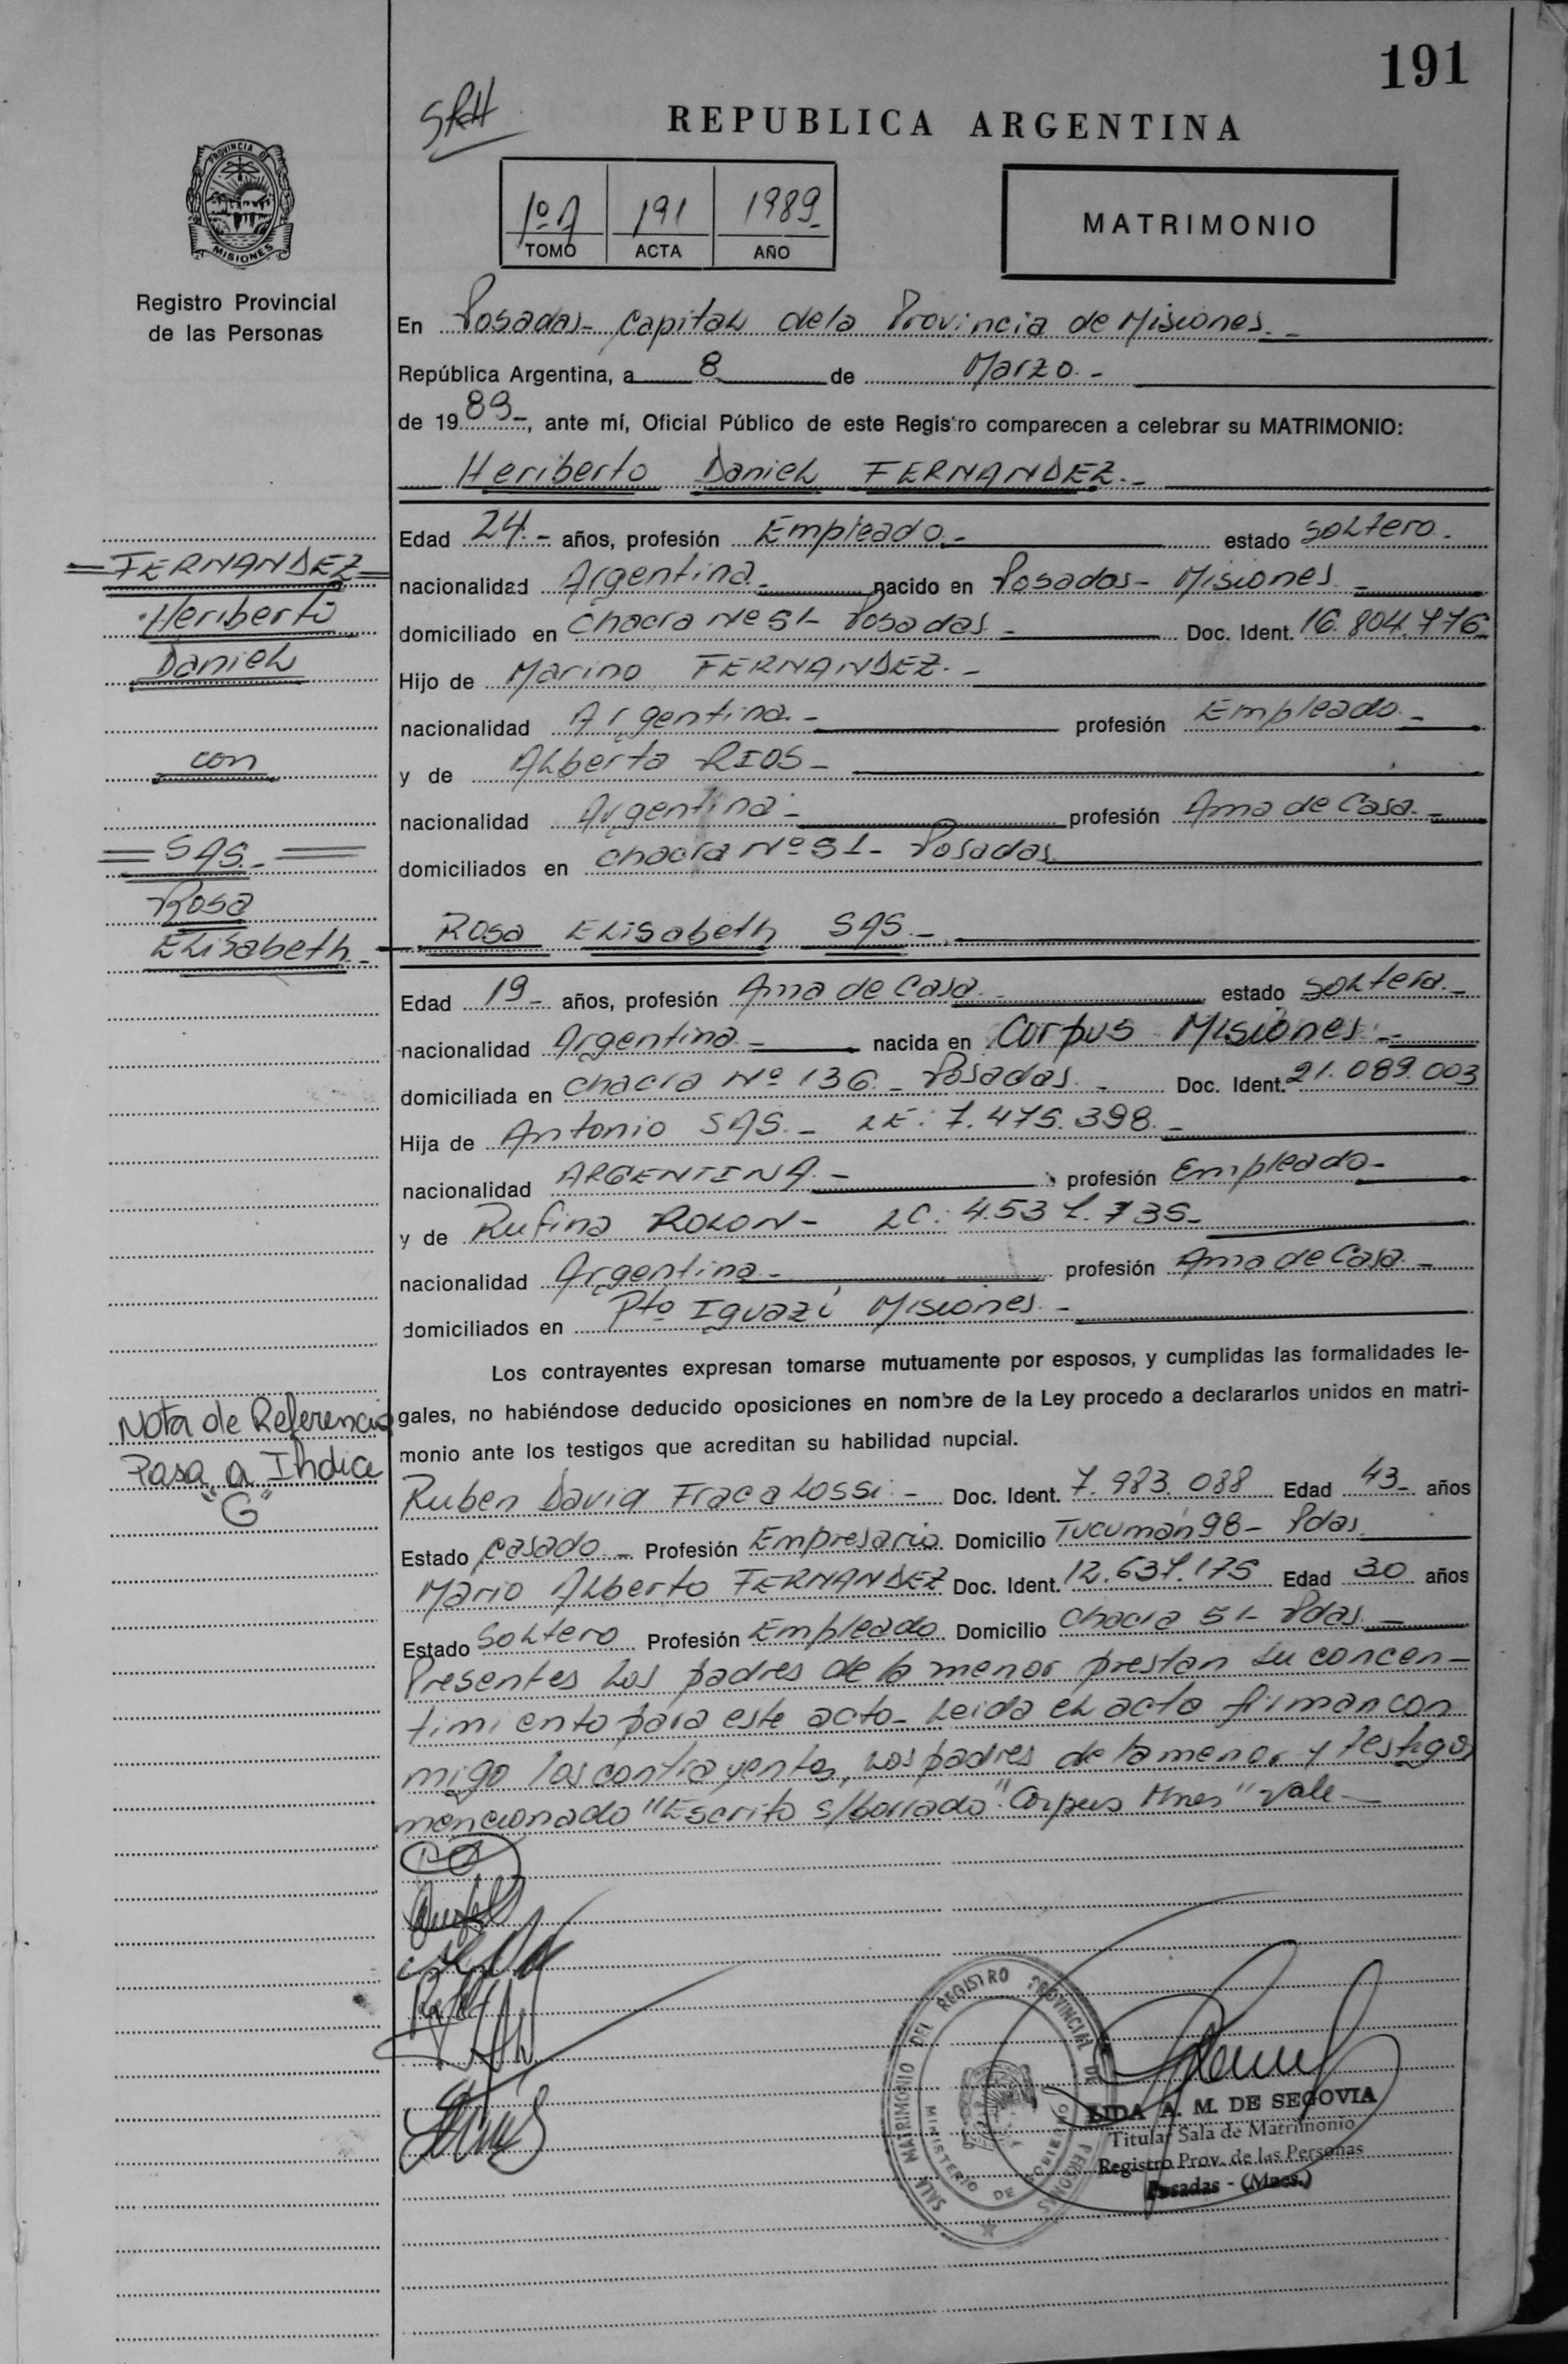 191
SRH
REPUBLICA ARGENTINA
PROVINCIA D
MISIONES
Registro Provincial
de las Personas
1º A 191 1989-
TOMO ACTA AÑO
MATRIMONIO
En Posadas- Capital de la Provincia de Misiones.-
República Argentina, a 8 de Marzo.-
de 1989-, ante mí, Oficial Público de este Registro comparecen a celebrar su MATRIMONIO:
Heriberto Daniel FERNANDEZ.-
Edad 24.- años, profesión Empleado.- estado soltero.-
nacionalidad Argentina.- nacido en Posadas- Misiones.-
domiciliado en Chacra Nº 51- Posadas- Doc. Ident. 16.804.776-
Hijo de Marino FERNANDEZ.-
nacionalidad Argentina.- profesión Empleado.-
y de Alberta RIOS-
nacionalidad Argentina- profesión Ama de Casa.-
domiciliados en Chacra Nº 51- Posadas
FERNANDEZ
Heriberto
Daniel
con
SAS.-
Rosa
Elisabeth.-
Rosa Elisabeth SAS.-
Edad 19- años, profesión Ama de Casa.- estado soltera.-
nacionalidad Argentina.- nacida en Corpus Misiones.-
domiciliada en Chacra Nº 136.- Posadas.- Doc. Ident. 21.089.003
Hija de Antonio SAS.- LE: 7.475.398.-
nacionalidad ARGENTINA.- profesión Empleado-
y de Rufina ROLON- LC: 4.537.735-
nacionalidad Argentina- profesión Ama de Casa.-
domiciliados en Pto Iguazú Misiones.-
Los contrayentes expresan tomarse mutuamente por esposos, y cumplidas las formalidades le-
gales, no habiéndose deducido oposiciones en nombre de la Ley procedo a declararlos unidos en matri-
monio ante los testigos que acreditan su habilidad nupcial.
Nota de Referencia
Pasa a Indice
"G"
Ruben David Fracalossi.- Doc. Ident. 7.983.088 Edad 43- años
Estado casado- Profesión Empresario Domicilio Tucumán 98- Pdas
Mario Alberto FERNANDEZ Doc. Ident. 12.637.175 Edad 30 años
Estado Soltero Profesión Empleado Domicilio Chacra 51- Pdas.-
Presentes los padres de la menor prestan su concen-
timiento para este acto- Leida el acta firman con
migo los contrayentes, los padres de la menor y testigos
mencionado "Escrito s/borrado": "Corpus Mnes" Vale-
SALA MATRIMONIO DEL REGISTRO PROVINCIAL DE PERSONAS
MINISTERIO DE GOBIERNO
LIDA A. M. DE SEGOVIA
Titular Sala de Matrimonio
Registro Prov. de las Personas
Posadas - (Mnes.)